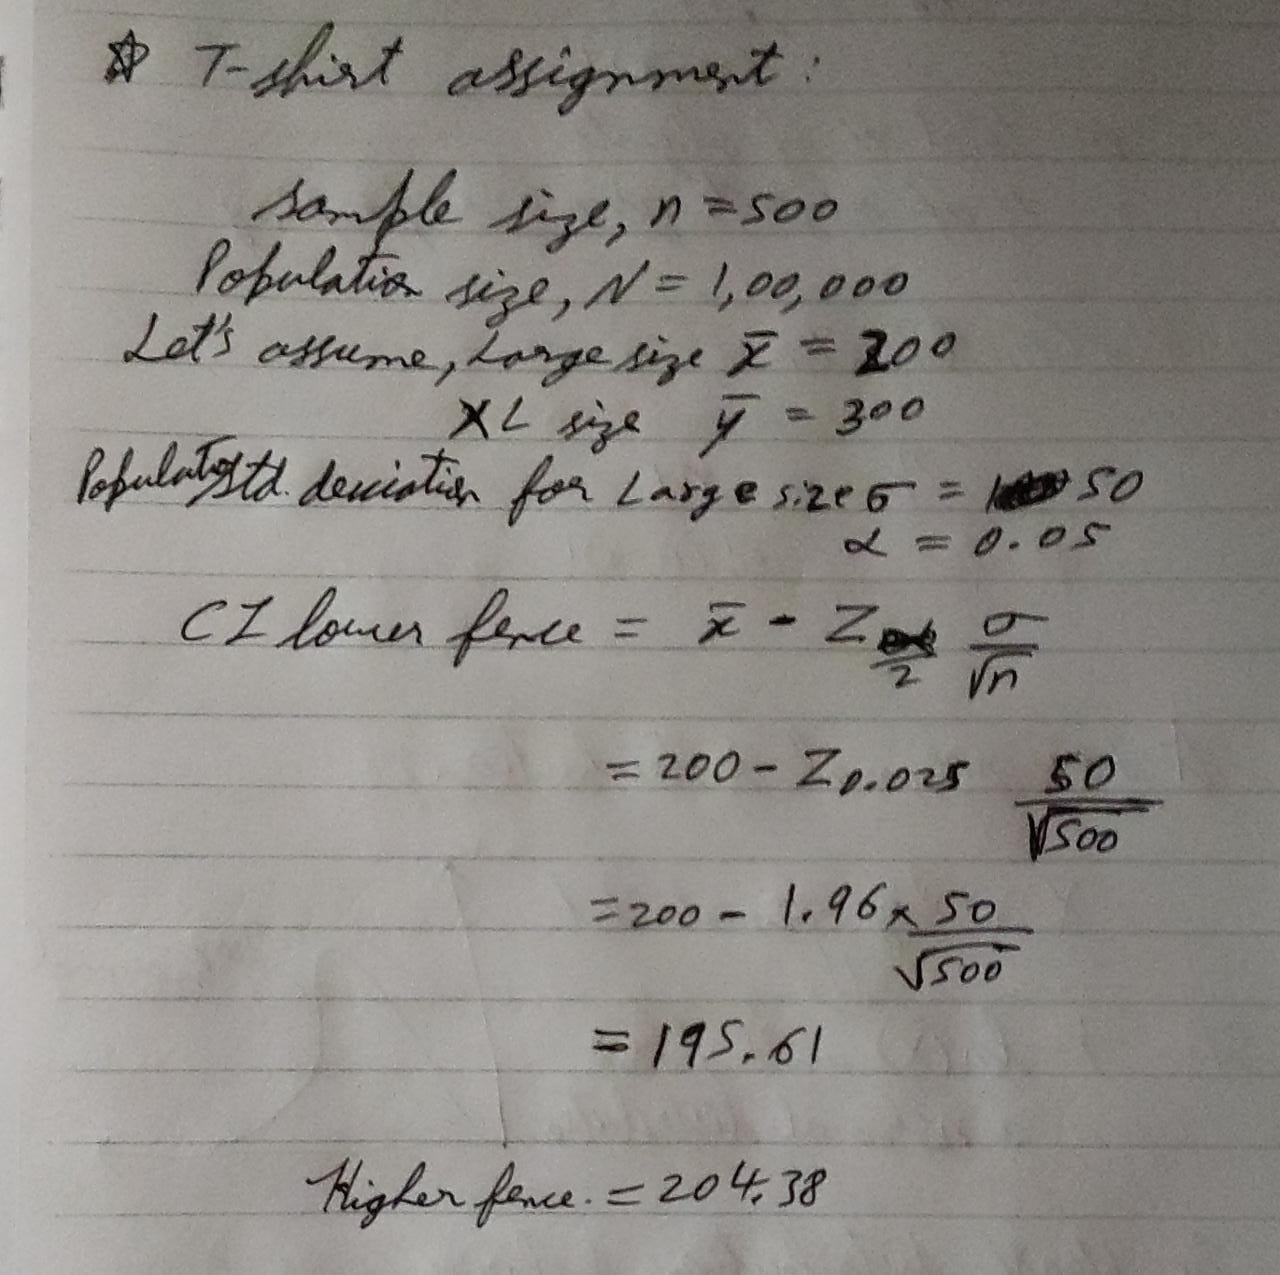 ☆ T-shirt assignment:
Sample size, n = 500
Population size, N = 1,00,000
Let's assume, Large size x̄ = 200
XL size ȳ = 300
Population std. deviation for Large size σ = 50
α = 0.05
CI lower fence = x̄ - Z α/2 σ/√n
= 200 - Z 0.025 50/√500
= 200 - 1.96 × 50/√500
= 195.61
Higher fence. = 204.38